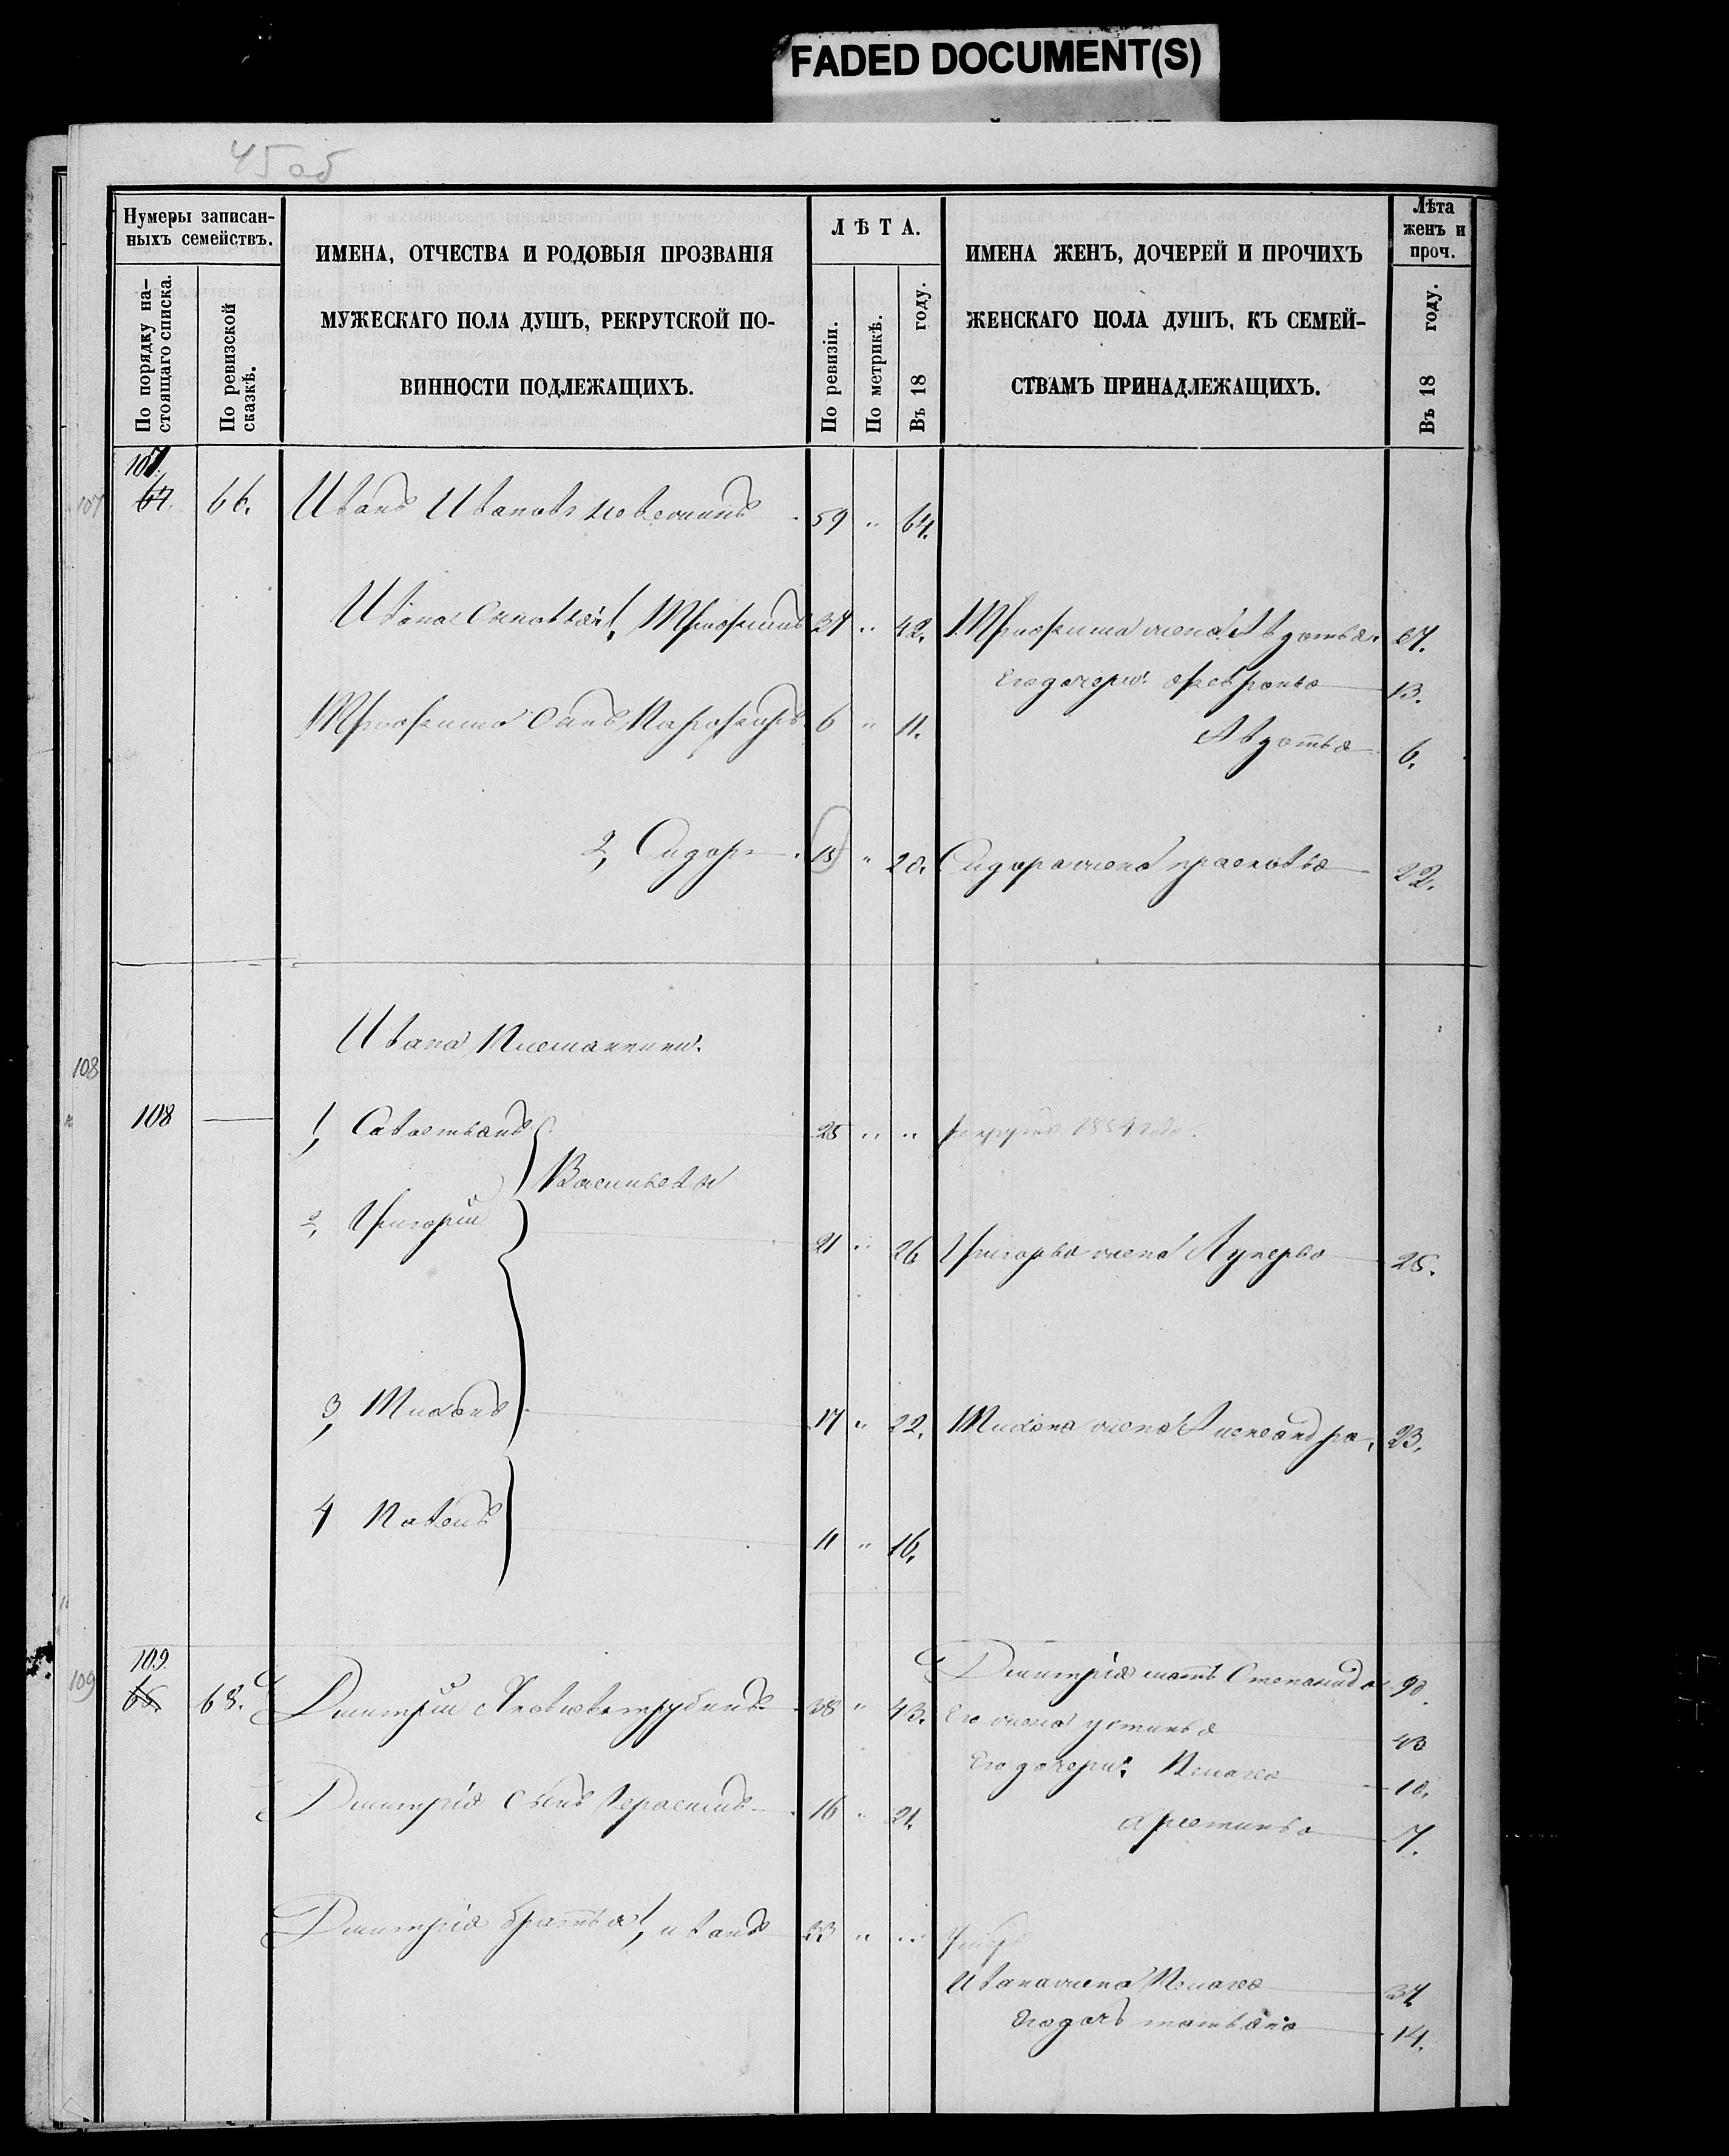 FADED DOCUMENT(S)
45об
Нумеры записан-
ныхъ семействъ.
По порядку на-
стоящаго списка.
По ревизской
сказкѣ.
ИМЕНА, ОТЧЕСТВА И РОДОВЫЯ ПРОЗВАНІЯ
МУЖЕСКАГО ПОЛА ДУШЪ, РЕКРУТСКОЙ ПО-
ВИННОСТИ ПОДЛЕЖАЩИХЪ.
ЛѢТА.
По ревизіи.
По метрикѣ.
Въ 18 году.
ИМЕНА ЖЕНЪ, ДОЧЕРЕЙ И ПРОЧИХЪ
ЖЕНСКАГО ПОЛА ДУШЪ, КЪ СЕМЕЙ-
СТВАМЪ ПРИНАДЛЕЖАЩИХЪ.
Лѣта
женъ и
проч.
Въ 18 году.
107.
107 64. 66. Иванъ Ивановъ 59 " 64.
Ивана Сыновья 1, Трофимъ 37 " 42. Трофима жена Авдотья 37.
Его дочери: Февронья 13.
Трофима Сынъ Парфиръ 6 " 11.
Авдотья 6.
2, Сидоръ 15 " 20. Сидора жена прасковья 22.
Ивана Племянники.
108
108 — 1, Савостьянъ 25 " " рекрутъ 1854 года.
Васильевы
2, Григорій 21 " 26 Григорья жена Лукерья 25.
3, Михалъ 17 " 22. Михала жена Александра, 23.
4 Павелъ 11 " 16.
109.
Дмитрія мать Степанида 90.
109 65. 68. Дмитрій 38 " 43. Его жена устинья 43
Его дочери: Пелагея 10.
Дмитрія Сынъ Герасимъ 16 " 21.
Христинья 7.
Дмитрія братья 1, иванъ 33 " "
Ивана жена Пелагея 37.
Его дочь татьяна 14.